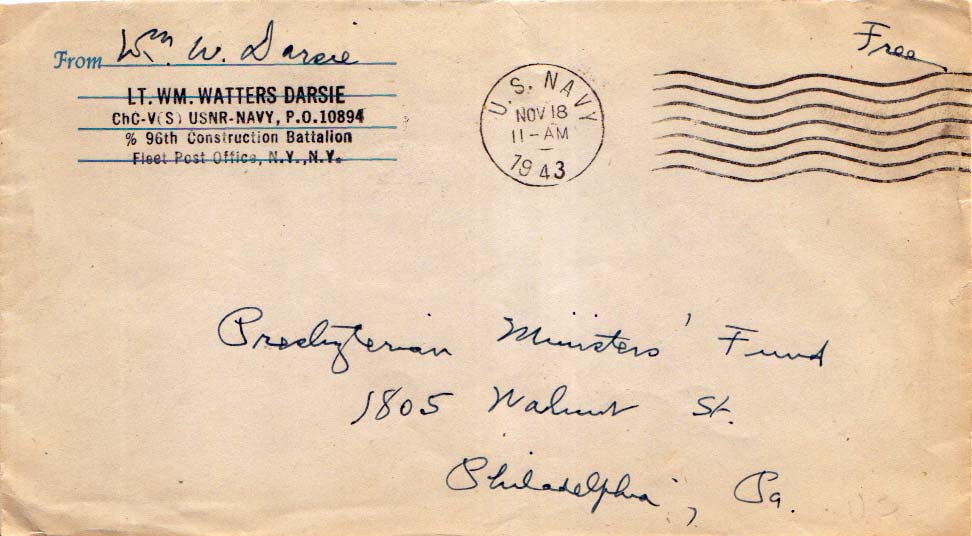 From Wm. W. Darsie
LT. WM. WATTERS DARSIE
ChC-V(S) USNR-NAVY, P.O.10894
% 96th Construction Battalion
Fleet Post Office, N.Y.,N.Y.
U.S. NAVY
NOV 18
11-AM
1943
Free
Presbyterian Ministers' Fund
1805 Walnut St.
Philadelphia, Pa.